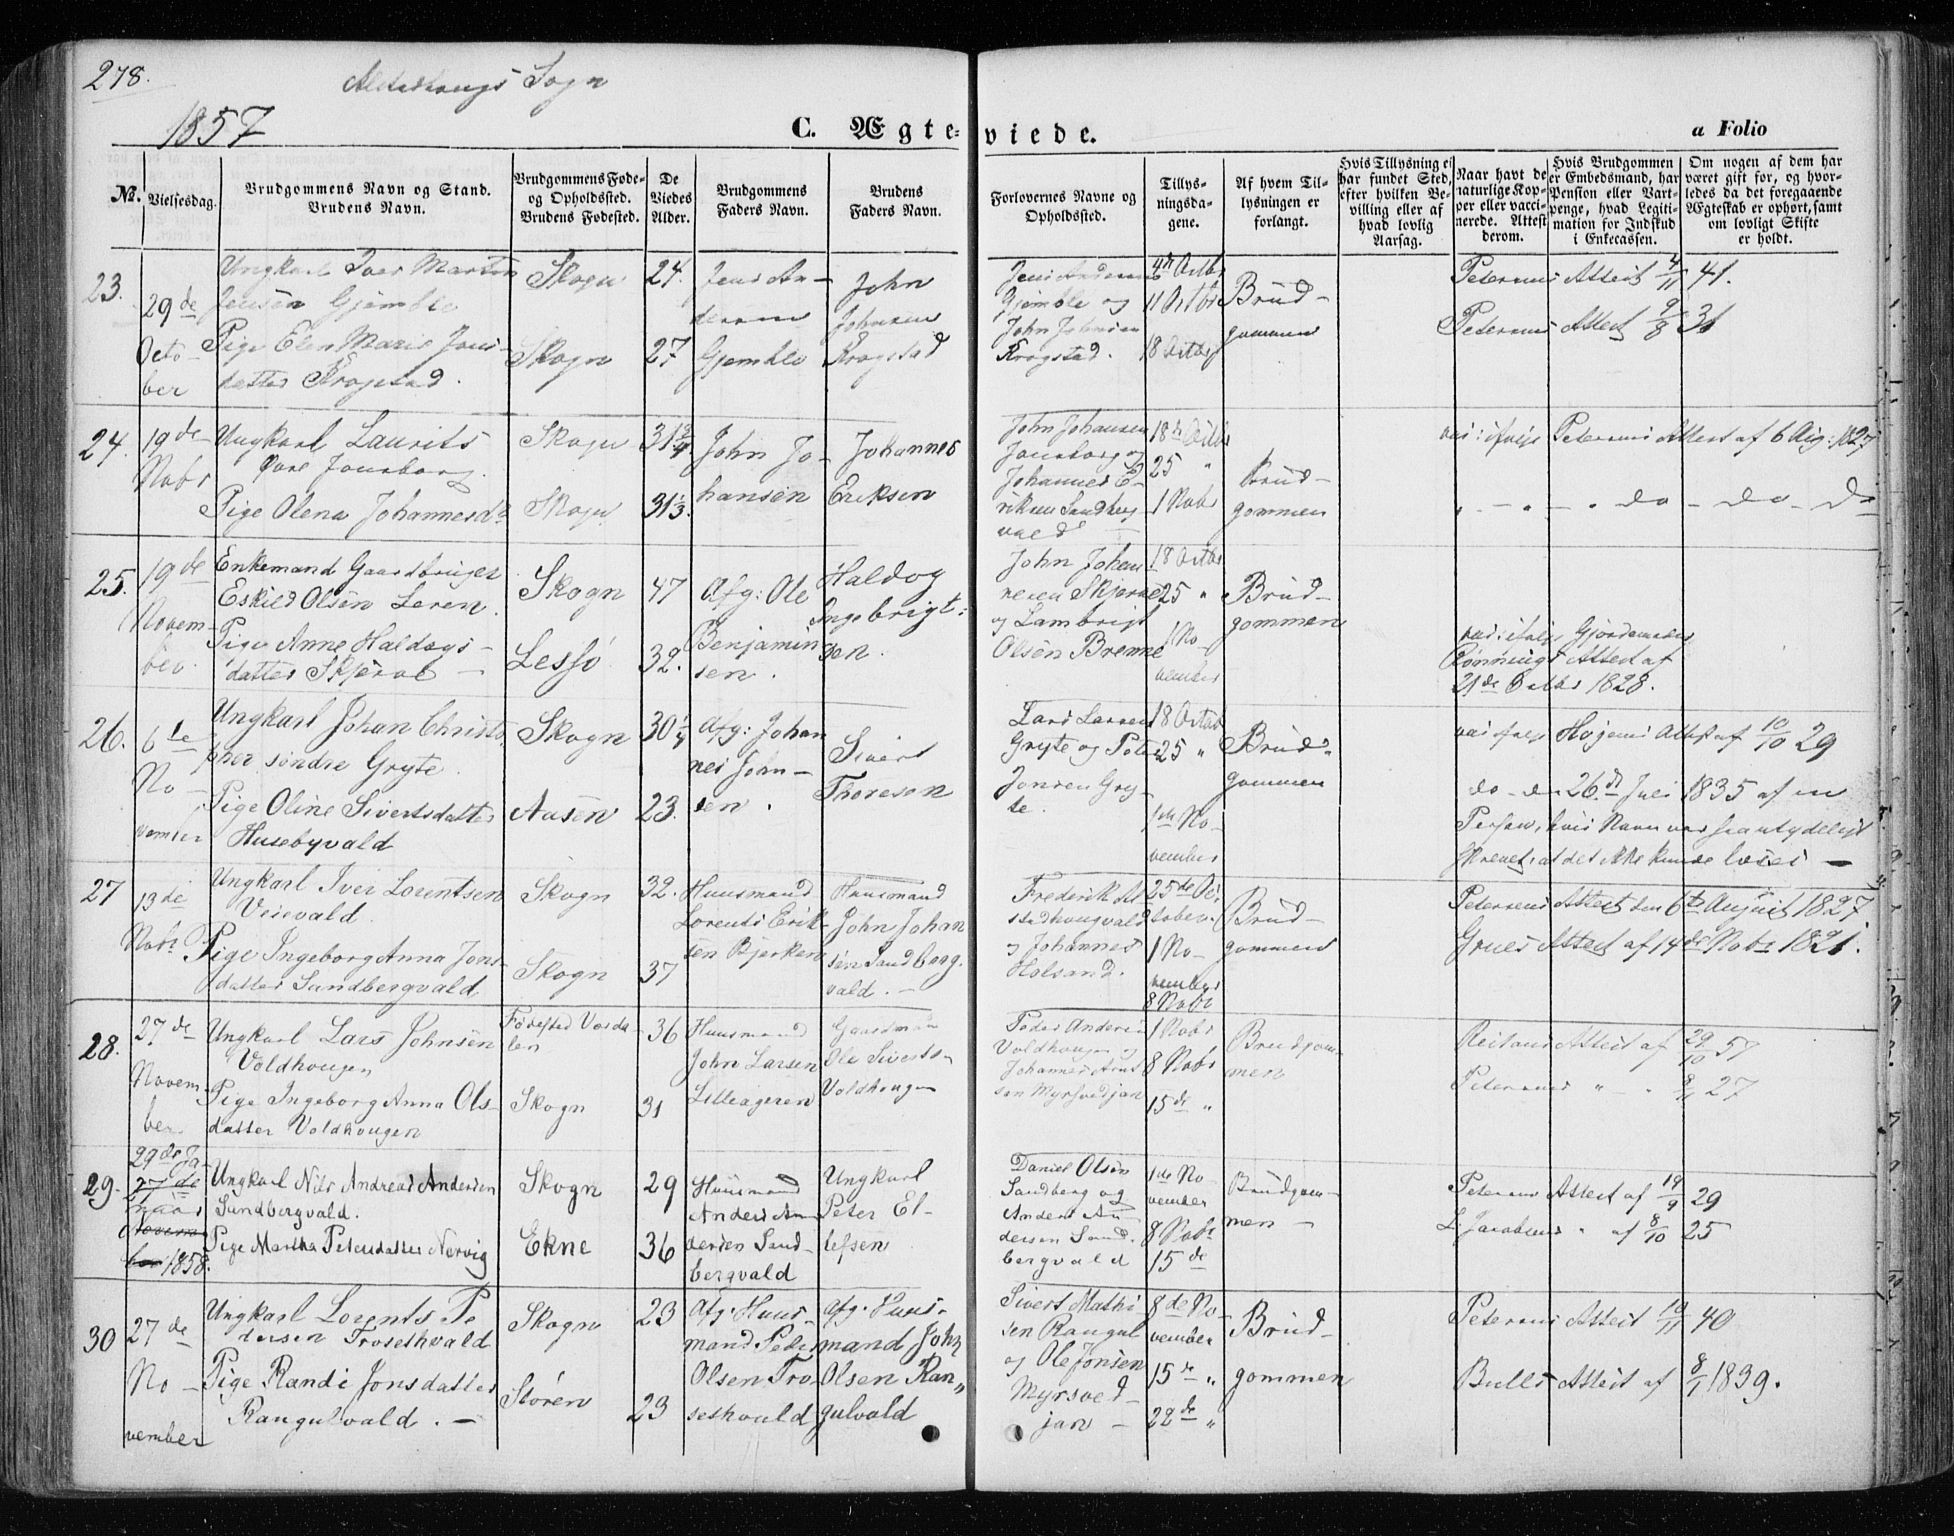 278.
Alstadhougs Sogn
1857
C. Ægteviede.
a Folio
No.
Vielsesdag.
Brudgommens Navn og Stand.
Brudens Navn.
Brudgommens Føde-
og Opholdssted.
Brudens Fødested.
De
Viedes
Alder.
Brudgommens
Faders Navn.
Brudens
Faders Navn.
Forlovernes Navne og
Opholdssted.
Tillys-
ningsda-
gene.
Af hvem Til-
lysningen er
forlangt.
Hvis Tillysning ei
har fundet Sted,
efter hvilken Be-
villing eller af
hvad lovlig
Aarsag.
Naar havt de
naturlige Kop-
per eller vacci-
nerede. Attest
derom.
Hvis Brudgommen
er Embedsmand, har
Pension eller Vart-
penge, hvad Legiti-
mation for Indskud
i Enkecassen.
Om nogen af dem har
været gift før, og hvor-
ledes da det foregaaende
Ægteskab er ophørt, samt
om lovligt Skifte
er holdt.
23.
29de
Octo
ber
Ungkarl Iver Martin
Jensen Gjemble
Pige Elen Marie Jons-
datter Krogstad.
Skogn
Skogn
24.
27
Jens An-
dersen
Gjemble
John
Johnsen
Krogstad
Jens Andersen
Gjemble og
John Johnsen
Krogstad.
4de Octbr
11 Octbr
18 Octbr
Brud-
gommen
Petersens Attest 4/11 41.
Petersens Attest 9/8 31
24.
19de
Nobr
Ungkarl Laurits
Øvre Jonsborg.
Pige Olena Johannesdr
Skogn
Skogn
31 3/4.
31 1/3.
John Jo-
hansen
Johannes
Eriksen
John Johansen
Jonsborg og
Johannes E-
riksen Sandberg
vald
18de Octbr
25 "
1 Nobr
Brud-
gommen
vac: ifølge Petersens Attest af 6 Aug: 1827
" - " - " do - do - do
25.
19de
Novem-
ber.
Enkemand Gaardbruger
Eskild Olsen Leren.
Pige Anne Haldogs-
datter Skjerve
Skogn
Lessø
47
32.
Afg: Ole
Benjamin
sen.
Haldog
Ingebrigt:
sen.
John Johan
nesen Skjerve
og Lambrigt
Olsen Brenne
18 Octbr
25 "
1 No-
vember
Brud-
gommen
vac: ifølge Gjordemoder
Rønnings Attest af
21de Octbr 1828.
26.
6te
No-
vember
Ungkarl Johan Christo
pher søndre Gryte.
Pige Oline Sivertsdatter
Husebyvald
Skogn
Aasen
30 1/4
23.
Afg: Johan
nes John-
sen.
Sivert
Thoresen
Lars Larsen
Gryte og Peter
Jonsen Gry-
te.
18 Octob
25 "
1ste No-
vember
Brud-
gommen
vac ifølge Højems Attest af 10/10 29
do - do 26de Juli 1835 af en
Person, hvis Navn var saa utydeligt
skrevet, at det ikke kunde læses -
27
13de
Nobr
Ungkarl Iver Lorentsen
Veievald.
Pige Ingeborg Anna Jons-
datter Sandbergvald
Skogn
Skogn
32.
37
Huusmand
Lorents Erik-
sen Bjerken
Huusmand
John Johan
sen Sandberg
vald.-
Frederik Al-
stadhougvald
og Johannes
Holsand.
25de Oc-
tober.
1 No-
vember
8 Nobr
Brud-
gommen
Petersens Attest den 6te August 1827.
Grues Attest af 14de Nobr 1821.
28.
27de
Novem-
ber
Ungkarl Lars Johnsen
Voldhougen
Pige Ingeborg Anna Ols-
datter Voldhougen
Fødested Værda-
len
Skogn
36
31
Huusmand
John Larsen
Lilleageren
Gaardman
Ole Siverts-
Voldhougen
Peder Andersen
Voldhougen og
Johannes Arnt
sen Myrsvedjan
1 Nobr
8 Nobr
15de "
Brudgom-
men
Reitans Attest af 29/10 57
Petersens " " 8/11 27
29.
29de Ja-
27de
nuar
Novem
ber 1858.
Ungkarl Nils Andreas Andersen
Sundbergvald.
Pige Martha Petersdatter Nervig
Skogn
Ekne
29
36
Huusmand
Anders An
dersen Sand-
bergvald
Ungkarl
Peter El-
lefsen
Daniel Olsen
Sandberg og
Anders An-
dersen Sand.
bergvald
1de No-
vember
8 Nobr
15de
Brudgom-
men -
Petersens Attest af 19/9 29
L. Jacobsens " af 8/10 25
30
27de
No-
vember
Ungkarl Lorents Pe
dersen Trosethvald
Pige Randi Jonsdatter
Rangulvald. -
Skogn
Støren
23
23
Afg. Huus
mand Peder
Olsen Tro-
sethvald
Afg. Huus-
mand John
Olsen Ran"
gulvald
Sivert Mathi
sen Rangul
og Ole Jonsen
Myrsved-
jan -
8de No-
vember
15de "
22de "
Brud-
gommen
Petersens Attest 10/11 40
Bulls Attest af 8/1 1839.